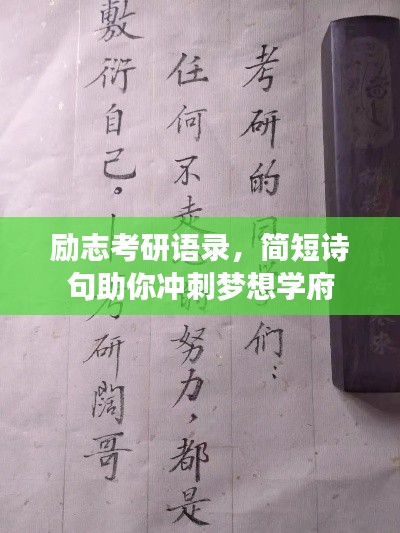 考研的同学们：
任何不走的努力，都是
敷衍自己。—考研阔哥
励志考研语录，简短诗
句助你冲刺梦想学府